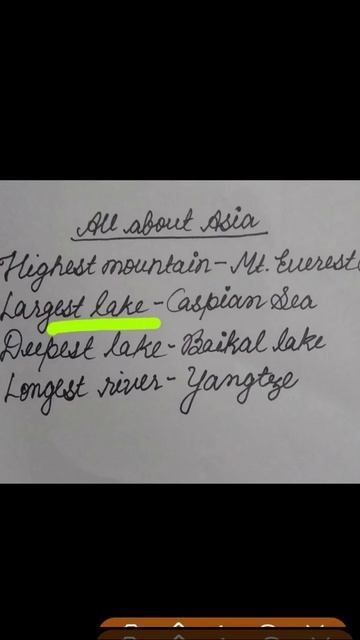 All about Asia
Highest mountain - Mt. Everest
Largest lake - Caspian Sea
Deepest lake - Baikal lake
Longest river - Yangtze